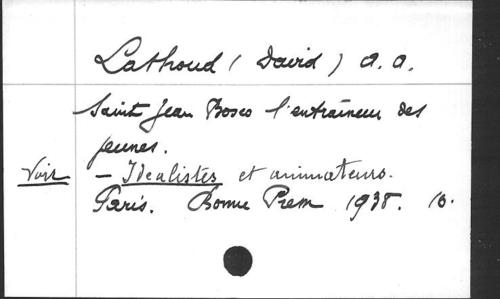 Lathoud ( David ) a. a.
Saint Jean Bosco l'entraineur des
jeunes.
Voir — Idealistes et animateurs.
Paris. Bonne Presse 1938. 16.